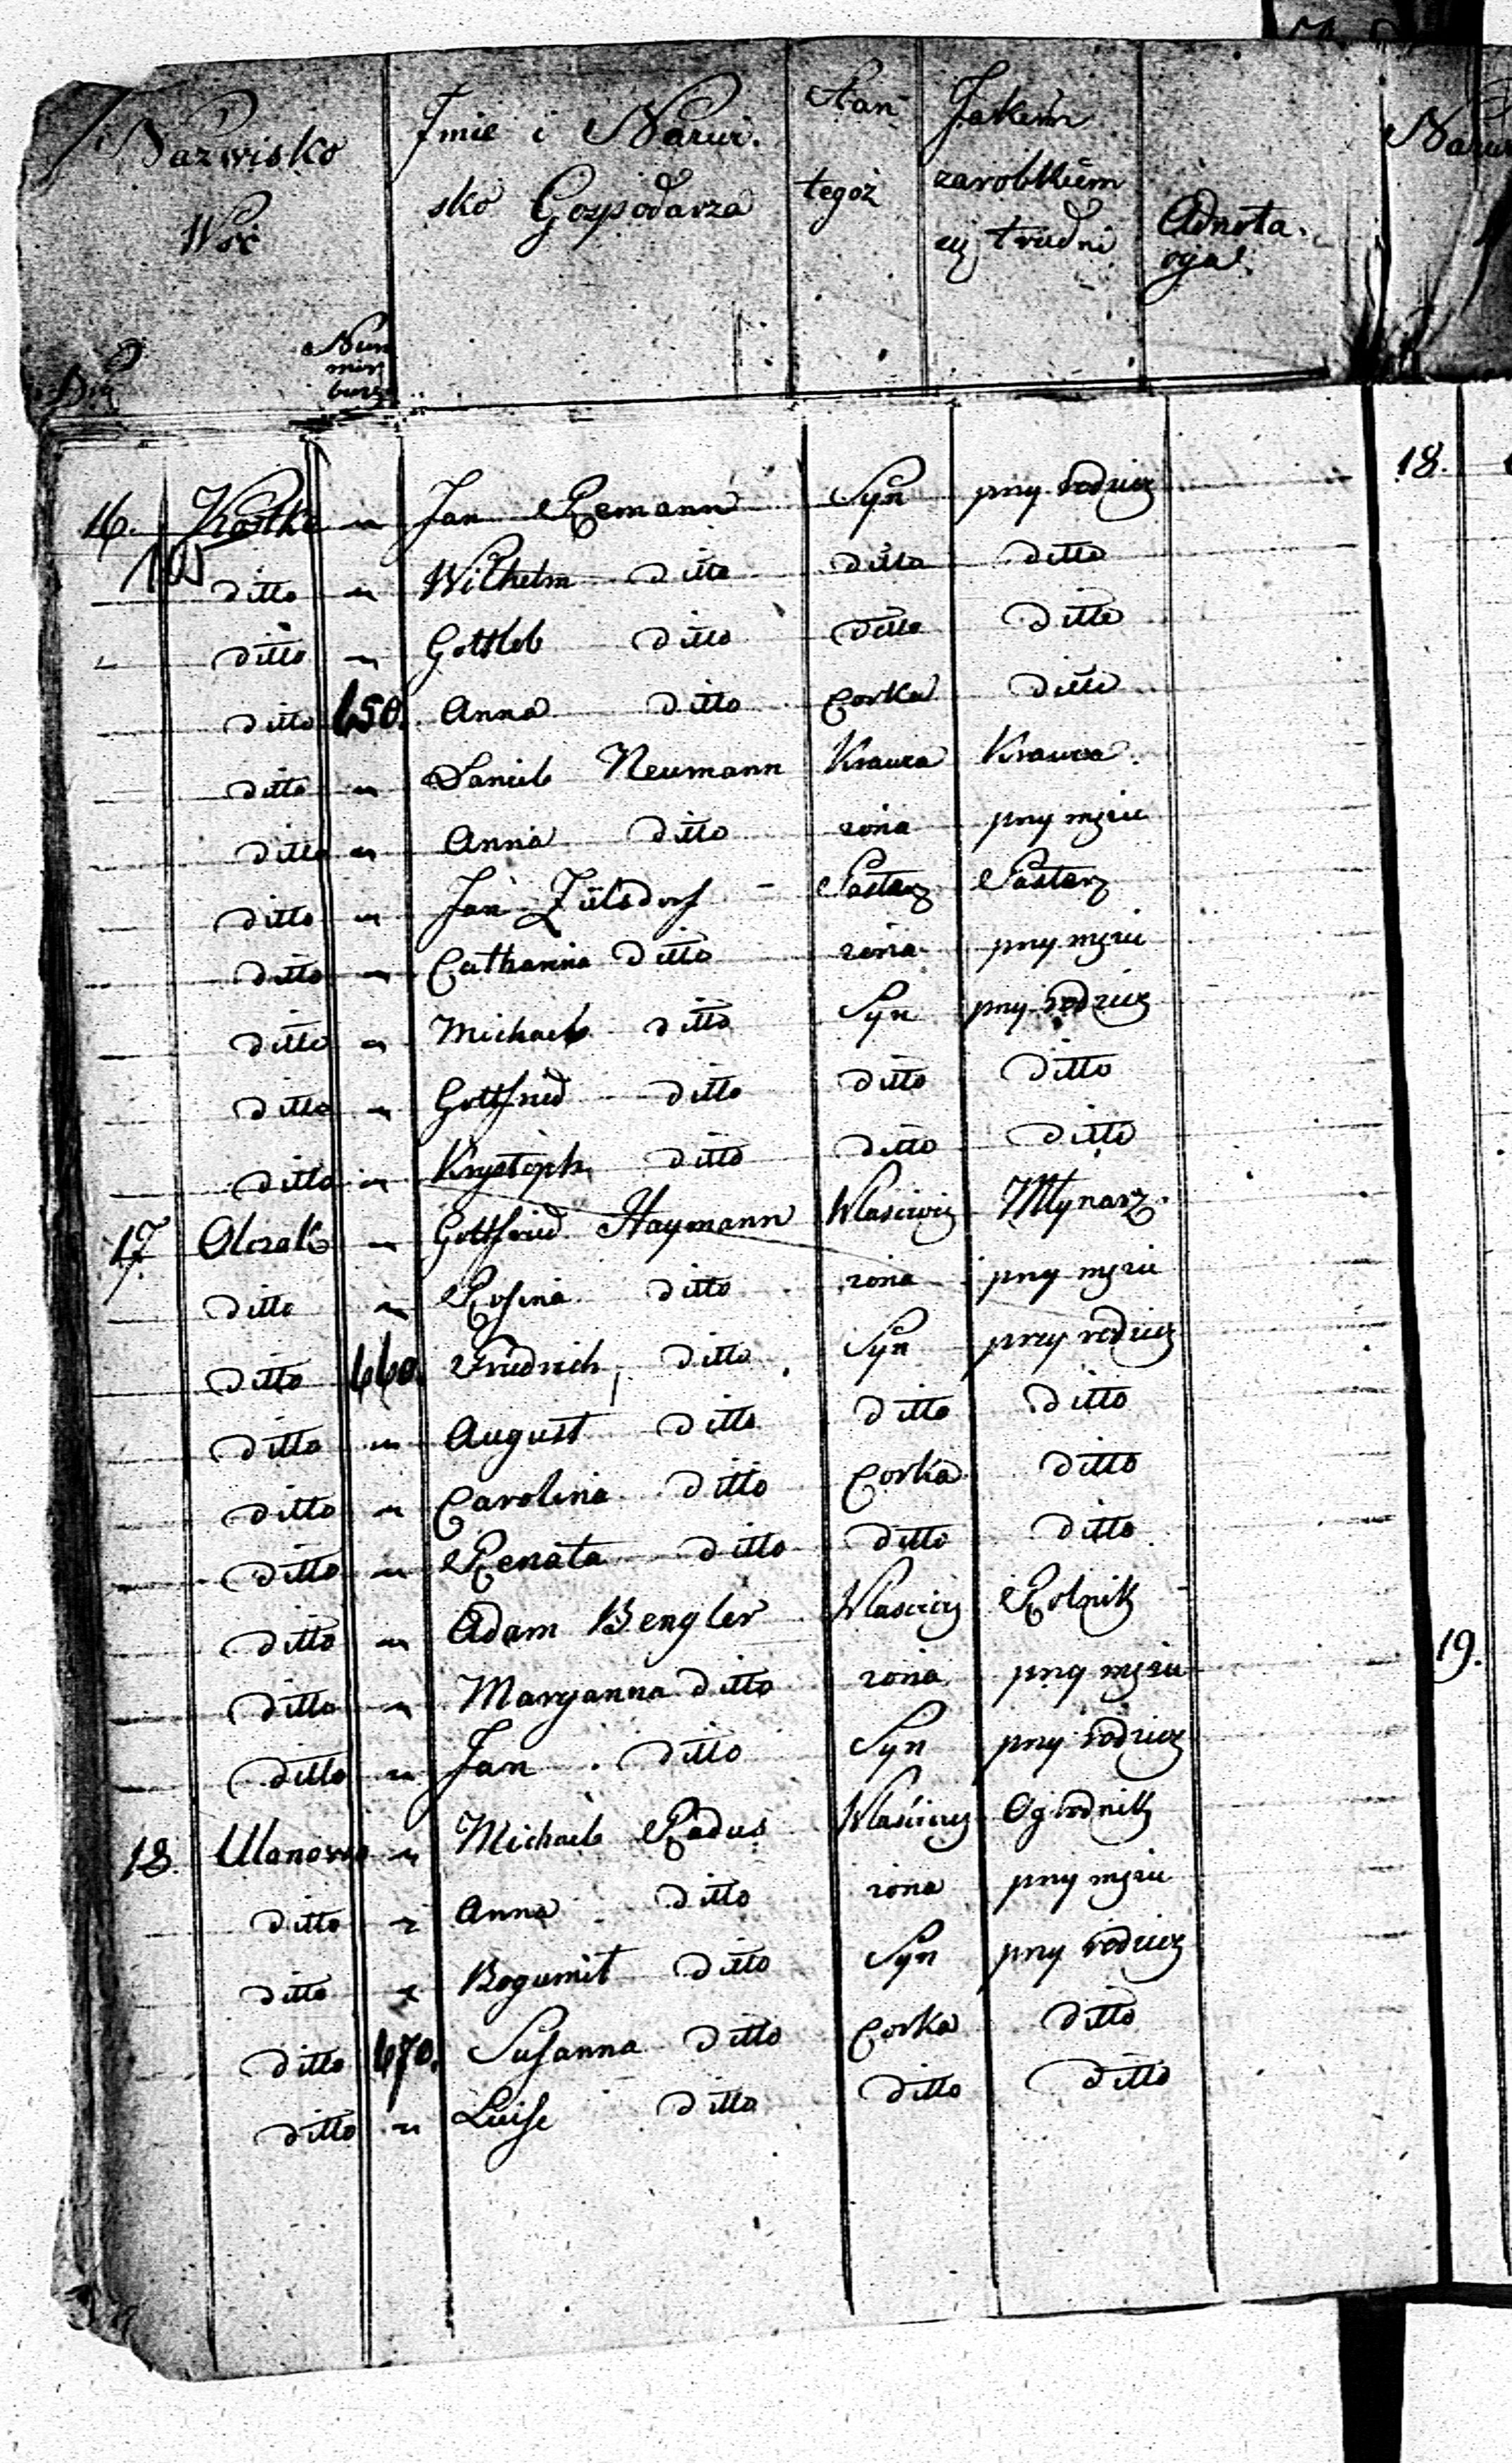 Nazwisko
Wsi
Num
mer
Imie i Nazwi.
sko Gospodarza
Stan
tegoż
Jakiem
zarobkiem
się trudni
Adnota.
cyja.
16. Kostki " Jan Remann Syn przy rodzicz
105
ditto " Wilhelm ditto ditto ditto
ditto " Gottlieb ditto ditto ditto
ditto 650. Anna ditto Corka ditto
ditto " Daniel Neumann Krawca Krawca.
ditto " Anna ditto zona przy mężu
ditto " Jan Zülsdorf - Pasterz Pasterz
ditto " Catharina ditto zona przy mężu
ditto " Michael ditto Syn przy rodzicz
ditto " Gottfried ditto ditto ditto
ditto " Krystoph ditto ditto ditto
17. Olszak " Gottfried Haymann Właściciej Młynarz.
ditto " Rosina ditto zona przy mężu
ditto 660. Friedrich ditto Syn przy rodzicz
ditto " August ditto ditto ditto
ditto " Carolina ditto Corka ditto
ditto " Renata ditto ditto ditto
ditto " Adam Bengler Właściciej Rolnik
ditto " Maryanna ditto zona przy mężu
ditto " Jan ditto Syn przy rodzicz
18. Ulanowo " Michael Radus Właściciej Ogrodnik
ditto " Anna ditto zona przy mężu
ditto " Bogumił ditto Syn przy rodzicz
ditto 670. Susanna ditto Corka ditto
ditto " Luise ditto ditto ditto
18.
19.